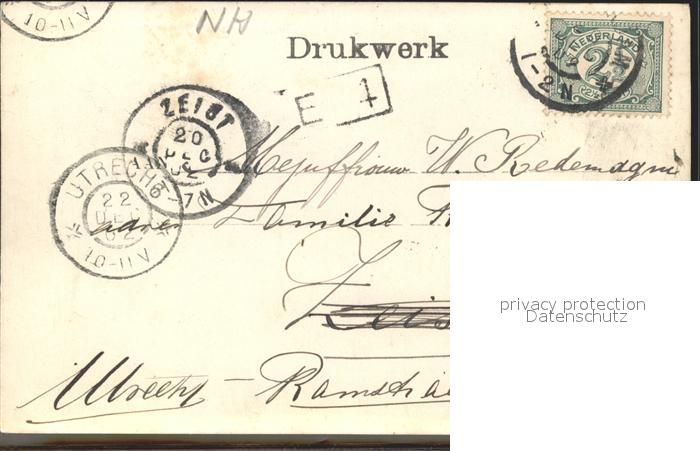 10-11V
NH
Drukwerk
NEDERLAND
2½
1-2N
E 4
ZEIST
20
DEC
02
6-7N
UTRECHT
22
DEC
02
10-11V
Mejuffrouw W. Redemagne
adres Familie
Zeis
Utrecht - Ramstra
privacy protection
Datenschutz